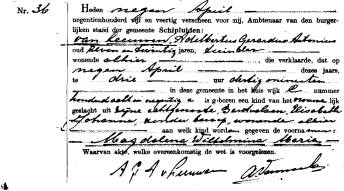 Nr. 36
Heden negen April
negentienhonderd vijf en veertig verscheen voor mij, Ambtenaar van den burger-
lijken stand der gemeente Schipluiden:
van Leeuwen, Adelbertus Gerardus Antonius
oud zeven en twintig jaren, tuinder
wonende alhier die verklaarde, dat op
negen April dezes jaars,
te drie uur dertig minuten
in deze gemeente in het huis wijk C nummer
honderd acht en negentig c is geboren een kind van het vrouwe-
lijk geslacht uit zijne echtgenoote Elisabeth
Johanna, zonder beroep, wonende alhier
aan welk kind worden gegeven de voornamen
Magdalena Wilhelmina Maria
Waarvan akte, welke overeenkomstig de wet is voorgelezen.
A G A v Leeuwen